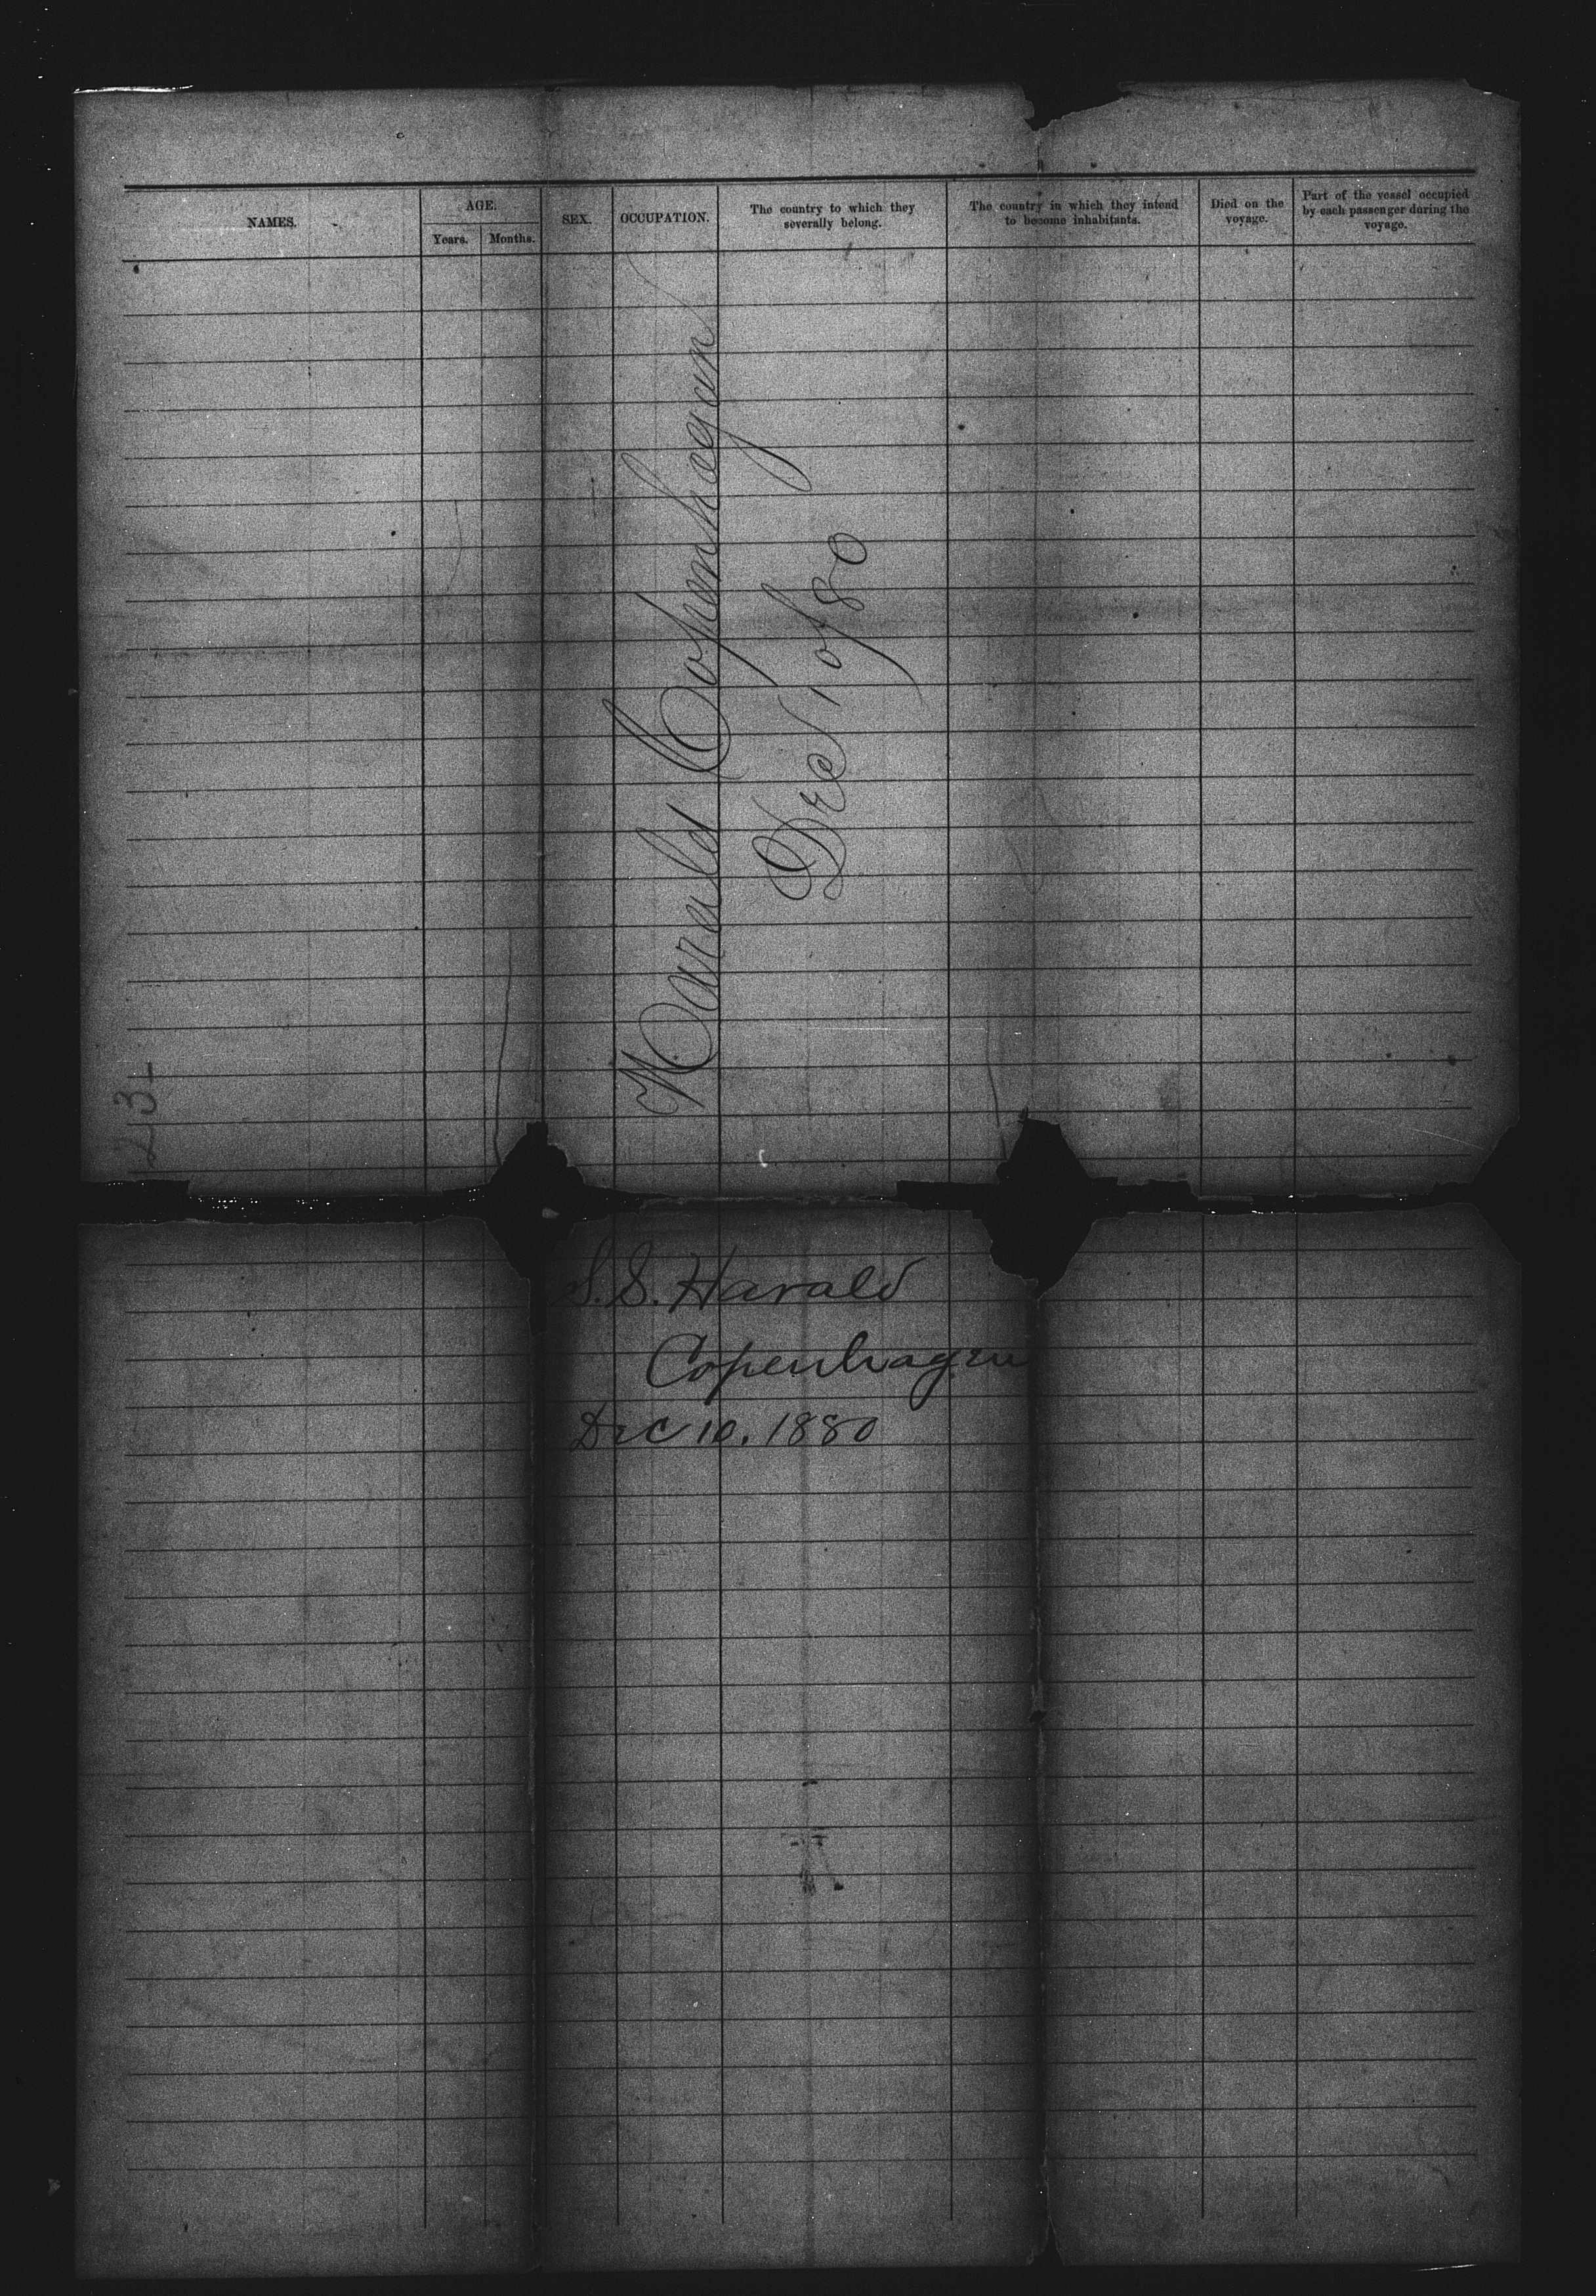 NAMES.
AGE.
Years. Months.
SEX.
OCCUPATION.
The country to which they
severally belong.
The country in which they intend
to become inhabitants.
Died on the
voyage.
Part of the vessel occupied
by each passenger during the
voyage.
Harald Copenhagen
Dec 1 of 80
23
S.S. Harald
Copenhagen
Dec 10. 1880